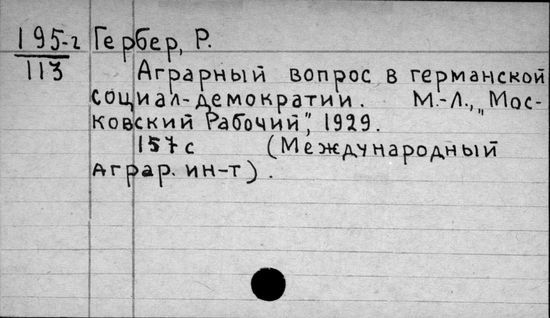 195-г Гербер, Р.
113
Аграрный вопрос в германской
социал-демократии. М.-Л., „Мос-
ковский Рабочий", 1929.
157с (Международный
Аграр. ин-т).